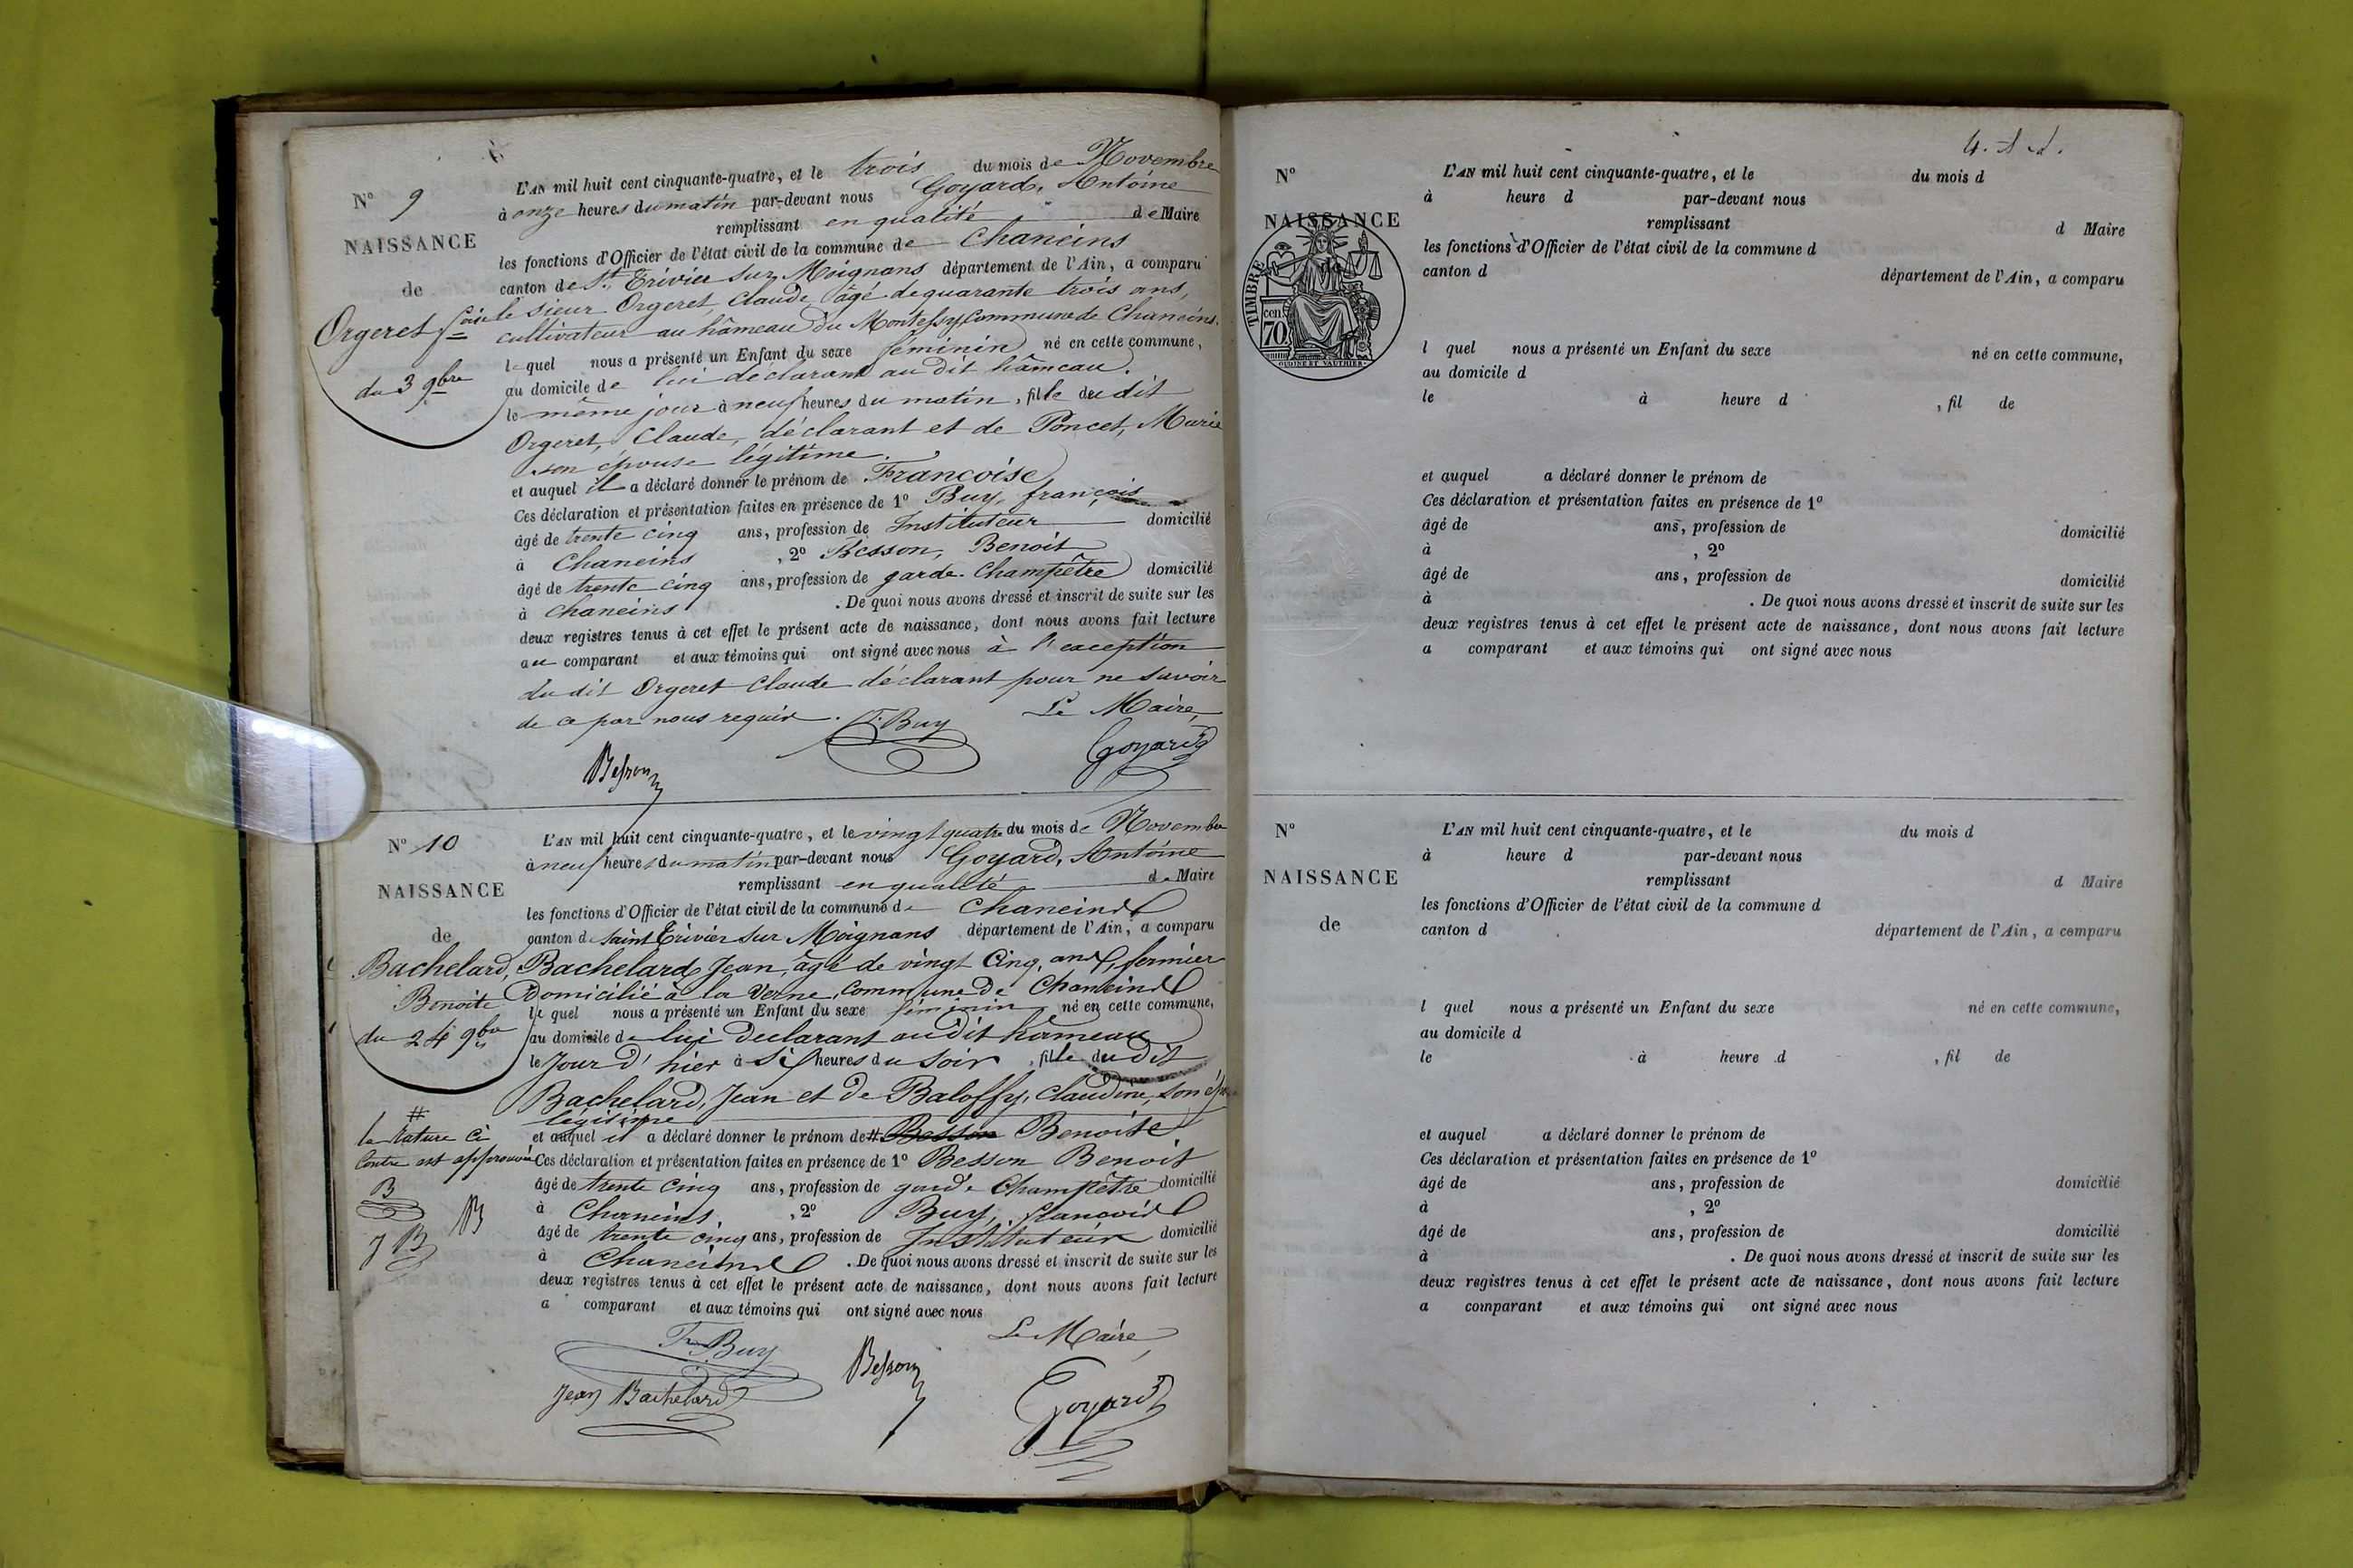 N° 9
NAISSANCE
de
Orgeret fcoise
du 3 9bre
L'AN mil huit cent cinquante-quatre, et le trois du mois de Novembre
à onze heures du matin par-devant nous Goyard, Antoine
remplissant en qualité de Maire
les fonctions d'Officier de l'état civil de la commune de Chaneins
canton de St Trivier sur Moignans département de l'Ain, a comparu
le sieur Orgeret, Claude, âgé de quarante trois ans,
cultivateur au hâmeau du Montessy commune de Chaneins.
lequel nous a présenté un Enfant du sexe féminin né en cette commune,
au domicile de lui déclarant au dit hâmeau.
le même jour à neuf heures du matin, fille du dit
Orgeret, Claude, déclarant et de Poncet, Marie
son épouse légitime.
et auquel il a déclaré donner le prénom de Francoise
Ces déclaration et présentation faites en présence de 1° Buy, françois
âgé de trente cinq ans, profession de Instituteur domicilié
à Chaneins , 2° Besson, Benoit
âgé de trente cinq ans, profession de garde-Champêtre domicilié
à Chaneins . De quoi nous avons dressé et inscrit de suite sur les
deux registres tenus à cet effet le présent acte de naissance, dont nous avons fait lecture
au comparant et aux témoins qui ont signé avec nous à l'exception
du dit Orgeret Claude déclarant pour ne savoir
de ce par nous requis. F. Buy Le Maire,
Besson Goyard
N° 10
NAISSANCE
de
Bachelard,
Benoite
du 24 9bre
L'AN mil huit cent cinquante-quatre, et le vingt quatre du mois de Novembre
à neuf heures du matin par-devant nous Goyard, Antoine
remplissant en qualité de Maire
les fonctions d'Officier de l'état civil de la commune de Chaneins
canton de saint Trivier sur Moignans département de l'Ain, a comparu
Bachelard, Jean, âgé de vingt Cinq, ans, fermier
Domicilié à la Verne, Commune De Chaneins
lequel nous a présenté un Enfant du sexe féminin né en cette commune,
au domicile de lui Declarant audit hâmeau
le Jour d'hier à Six heures du Soir, fille du Dit
Bachelard, Jean et de Baloffy, Claudine, son
légitime
et auquel il a déclaré donner le prénom de # Besson Benoite
Ces déclaration et présentation faites en présence de 1° Besson Benoit
âgé de trente cinq ans, profession de garde Champêtre domicilié
à Chaneins , 2° Buy, francois
âgé de trente cinq ans, profession de Instituteur domicilié
à Chaneins . De quoi nous avons dressé et inscrit de suite sur les
deux registres tenus à cet effet le présent acte de naissance, dont nous avons fait lecture
a comparant et aux témoins qui ont signé avec nous
Le Maire,
F. Buy Besson
Jean Bachelard Goyard
#
la rature ci
Contre est approuvée
B
B
J B
4.
N°
NAISSANCE
TIMBRE
cen.
70
L'AN mil huit cent cinquante-quatre, et le du mois d
à heure d par-devant nous
remplissant d Maire
les fonctions d'Officier de l'état civil de la commune d
canton d département de l'Ain, a comparu
l quel nous a présenté un Enfant du sexe né en cette commune,
au domicile d
le à heure d , fil de
et auquel a déclaré donner le prénom de
Ces déclaration et présentation faites en présence de 1°
âgé de ans, profession de domicilié
à , 2°
âgé de ans, profession de domicilié
à . De quoi nous avons dressé et inscrit de suite sur les
deux registres tenus à cet effet le présent acte de naissance, dont nous avons fait lecture
a comparant et aux témoins qui ont signé avec nous
N°
NAISSANCE
de
L'AN mil huit cent cinquante-quatre, et le du mois d
à heure d par-devant nous
remplissant d Maire
les fonctions d'Officier de l'état civil de la commune d
canton d département de l'Ain, a comparu
l quel nous a présenté un Enfant du sexe né en cette commune,
au domicile d
le à heure d , fil de
et auquel a déclaré donner le prénom de
Ces déclaration et présentation faites en présence de 1°
âgé de ans, profession de domicilié
à , 2°
âgé de ans, profession de domicilié
à . De quoi nous avons dressé et inscrit de suite sur les
deux registres tenus à cet effet le présent acte de naissance, dont nous avons fait lecture
a comparant et aux témoins qui ont signé avec nous